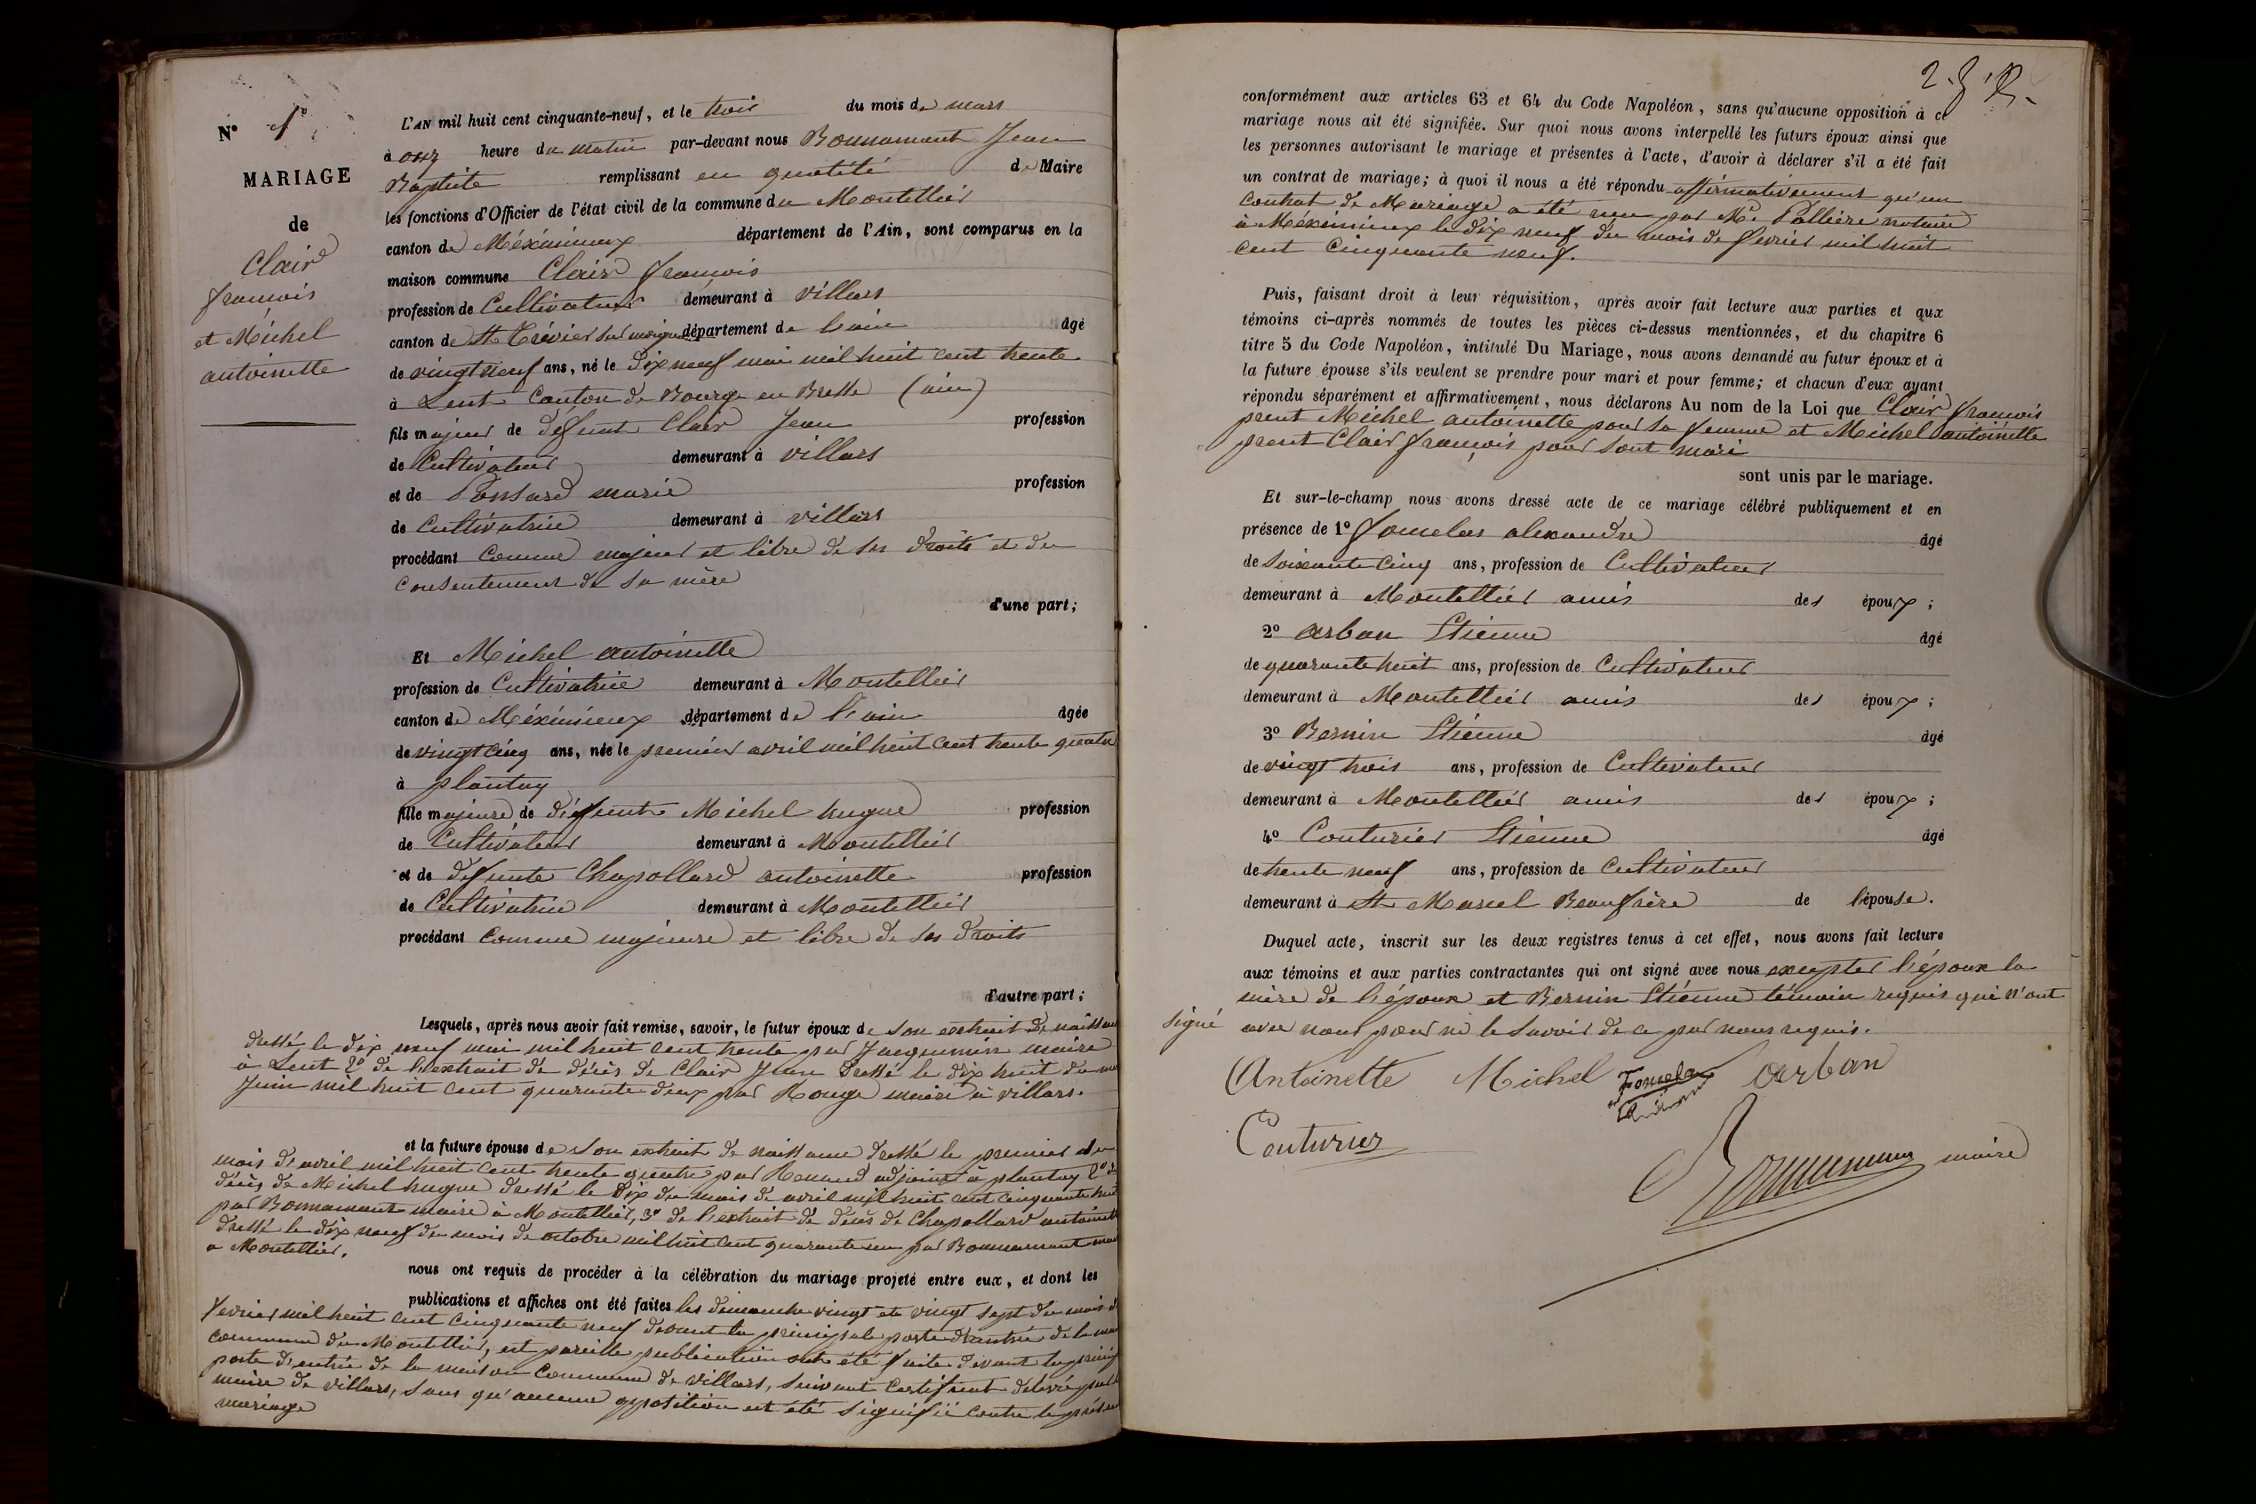 N° 1.
MARIAGE
de
Clair
françois
et Michel
antoinette
L'AN mil huit cent cinquante-neuf, et le trois du mois de mars
à onze heure du matin par-devant nous Bonnamant Jean
Baptiste remplissant en qualité de Maire
les fonctions d'Officier de l'état civil de la commune du Montellier
canton de Méximieux département de l'Ain, sont comparus en la
maison commune Clair françois
profession de Cultivateur demeurant à villars
canton de St Trévier sur moignans département de l'ain âgé
de vingt neuf ans, né le dix neuf mai mil huit cent trente
à Lent Canton de Bourg en Bresse (ain)
fils majeur de défunt Clair Jean profession
de Cultivateur demeurant à villars
et de Ponsard marie profession
de Cultivatrice demeurant à villars
procédant comme majeur et libre de ses droits et du
consentement de sa mère
d'une part;
Et Michel antoinette
profession de Cultivatrice demeurant à Montellier
canton de Méximieux département de l'ain âgée
de vingt cinq ans, née le premier avril mil huit cent trente quatre
à plantay
fille majeure de défunt Michel hugue profession
de Cultivateur demeurant à Montellier
et de defunte Chapolard antoinette profession
de Cultivatrice demeurant à Montellier
procédant comme majeure et libre de ses droits
d'autre part;
Lesquels, après nous avoir fait remise, savoir, le futur époux de son extrait de naissance
dressé le dix neuf mai mil huit cent trente par Jacquemin maire
à Lent 2° de l'extrait de décès de Clair Jean dressé le dix huit du mois
Juin mil huit cent quarante deux par Rouge maire à villars.
et la future épouse de son extrait de naissance dressé le premier du
mois d'avril mil huit cent trente quatre par Renaud adjoint à plantay 2° de
décès de Michel hugue dressé le dix du mois de avril mil huit cent cinquante huit
par Bonnamant maire à Montellier, 3° de l'extrait de décès de Chapollard antoinette
dressé le dix neuf du mois de octobre mil huit cent quarante un par Bonnamant maire
a Montellier.
nous ont requis de procéder à la célébration du mariage projeté entre eux, et dont les
publications et affiches ont été faites les dimanche vingt et vingt sept du mois de
fevrier mil huit cent cinquante neuf devant la principale porte d'entrée de la maison
commune du Montellier, et pareille publication ont été faite devant la princip
porte d'entrée de la maison commune de villars, suivant certificat délivré par le
maire de villars, sans qu'aucune opposition ait été signifié contre le présent
mariage
conformément aux articles 63 et 64 du Code Napoléon, sans qu'aucune opposition à ce
mariage nous ait été signifiée. Sur quoi nous avons interpellé les futurs époux ainsi que
les personnes autorisant le mariage et présentes à l'acte, d'avoir à déclarer s'il a été fait
un contrat de mariage; à quoi il nous a été répondu affirmativement qu'un
contrat de Mariage a été reçu par Me Pallière notaire
à Méximieux le dix neuf du mois de fevrier mil huit
cent cinquante neuf.
Puis, faisant droit à leur réquisition, après avoir fait lecture aux parties et aux
témoins ci-après nommés de toutes les pièces ci-dessus mentionnées, et du chapitre 6
titre 5 du Code Napoléon, intitulé Du Mariage, nous avons demandé au futur époux et à
la future épouse s'ils veulent se prendre pour mari et pour femme; et chacun d'eux ayant
répondu séparément et affirmativement, nous déclarons Au nom de la Loi que Clair françois
prent Michel antoinette pour sa femme et Michel antoinette
prent Clair françois pour sont mari
sont unis par le mariage.
Et sur-le-champ nous avons dressé acte de ce mariage célébré publiquement et en
présence de 1° Jomelas alexandre âgé
de soixante cinq ans, profession de Cultivateur
demeurant à Montellier amis des époux;
2° arban Etienne âgé
de quarante huit ans, profession de Cultivateur
demeurant à Montellier amis des époux;
3° Bernin Etienne âgé
de vingt trois ans, profession de Cultivateur
demeurant à Montellier amis des époux;
4° Couturier Etienne âgé
de trente neuf ans, profession de Cultivateur
demeurant à St Marcel Beaufrère de l'épouse.
Duquel acte, inscrit sur les deux registres tenus à cet effet, nous avons fait lecture
aux témoins et aux parties contractantes qui ont signé avec nous excepter l'époux la
mère de l'époux et Bernin Etienne témoin requis qui n'ont
signé avec nous pour ne le savoir de ce par nous requis.
Antoinette Michel arban
Couturier
Bonnamant maire